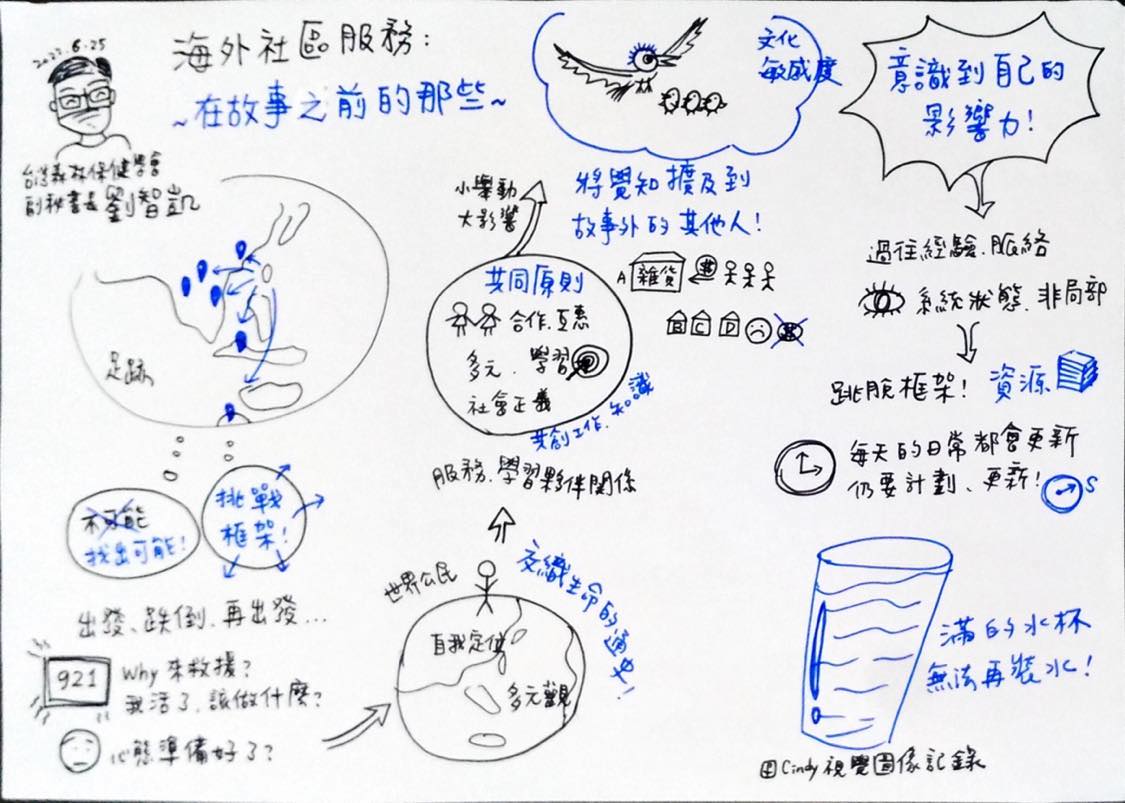 2022.6.25
海外社區服務:
~在故事之前的那些~
台灣森林保健學會
副秘書長 劉智凱
足跡
不可能
找出可能!
挑戰
框架!
出發、跌倒、再出發...
921
Why 來救援?
我活了,該做什麼?
心態準備好了?
世界公民
自我定位
多元觀
交織生命的通史!
服務、學習夥伴關係
共創工作、知識
共同原則
合作、互惠
多元、學習
社會正義
小舉動
大影響
文化
敏感度
將覺知擴及到
故事外的其他人!
A 雜貨 $
B C D
意識到自己的
影響力!
過往經驗、脈絡
系統狀態、非局部
跳脫框架! 資源
每天的日常都會更新
仍要計劃、更新!
S
滿的水杯
無法再裝水!
Cindy視覺圖像記錄